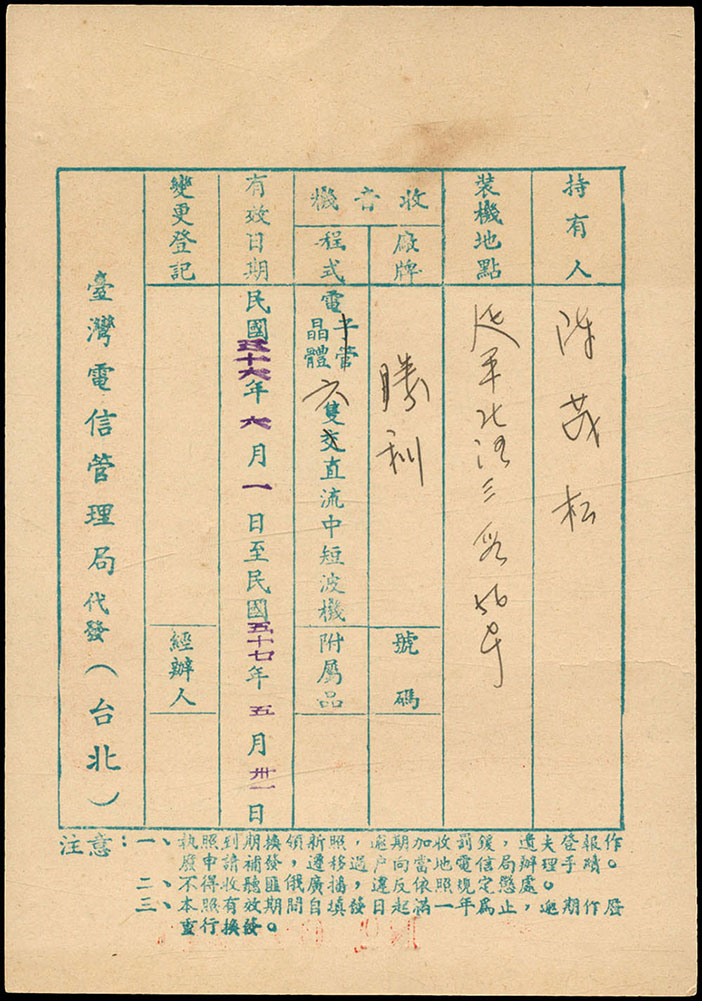 持有人 陳茂松
裝機地點 延平北路三段56号
收音機
廠牌 勝利 號碼
程式 電子管 晶體 六隻交直流中短波機 附屬品
有效日期 民國五十六年六月一日至民國五十七年五月卅一日
變更登記 經辦人
臺灣電信管理局代發（台北）
注意：一、執照到期換領新照，逾期加收罰鍰，遺失登報作
廢申請補發，遷移過戶當地電信局辦理手續。
二、不得收聽匪俄廣播，違反依照規定懲處。
三、本照有效期間自填發日起滿一年為止，逾期作廢
重行換發。